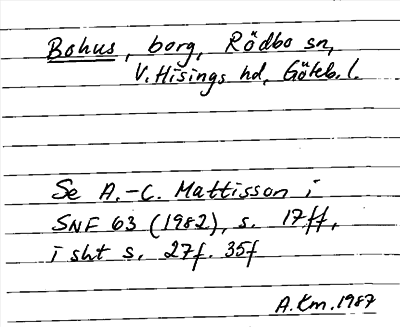 Bohus, borg, Rödbo sn,
V. Hisings hd, Göteb. l.
Se A.-C. Mattisson i
SNF 63 (1982), s. 17ff,
i sht s. 27f. 35f
A.Km.1987